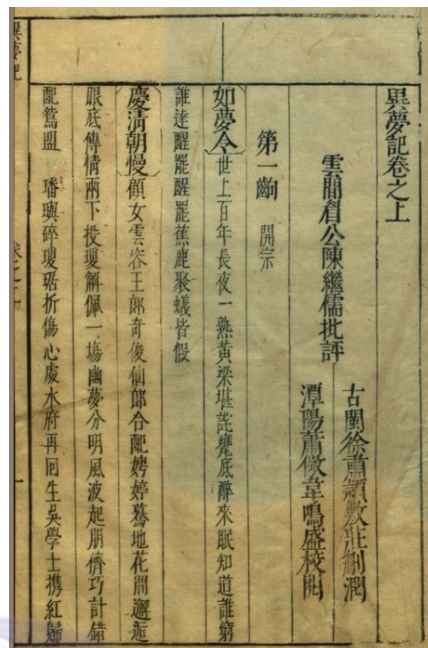 異夢記卷之上
雲間眉公陳繼儒批評
古閩徐肅穎敷莊刪潤
潭陽蕭儆韋鳴盛校閱
第一齣 開宗
如夢令世上百年長夜一熟黃梁堪詫甕底醉來眠知道誰窮
誰達醒罷醒罷蕉鹿聚蟻皆假
慶清朝慢顧女雲容王郎奇俊仙郎合配娉婷驀地花間邂逅
眼底傳情兩下投瓊解佩一塲幽夢分明風波起朋儕巧計錯
配鴛盟 璠璵碎瓊琚折傷心處水府再回生吳學士携紅歸
異夢記